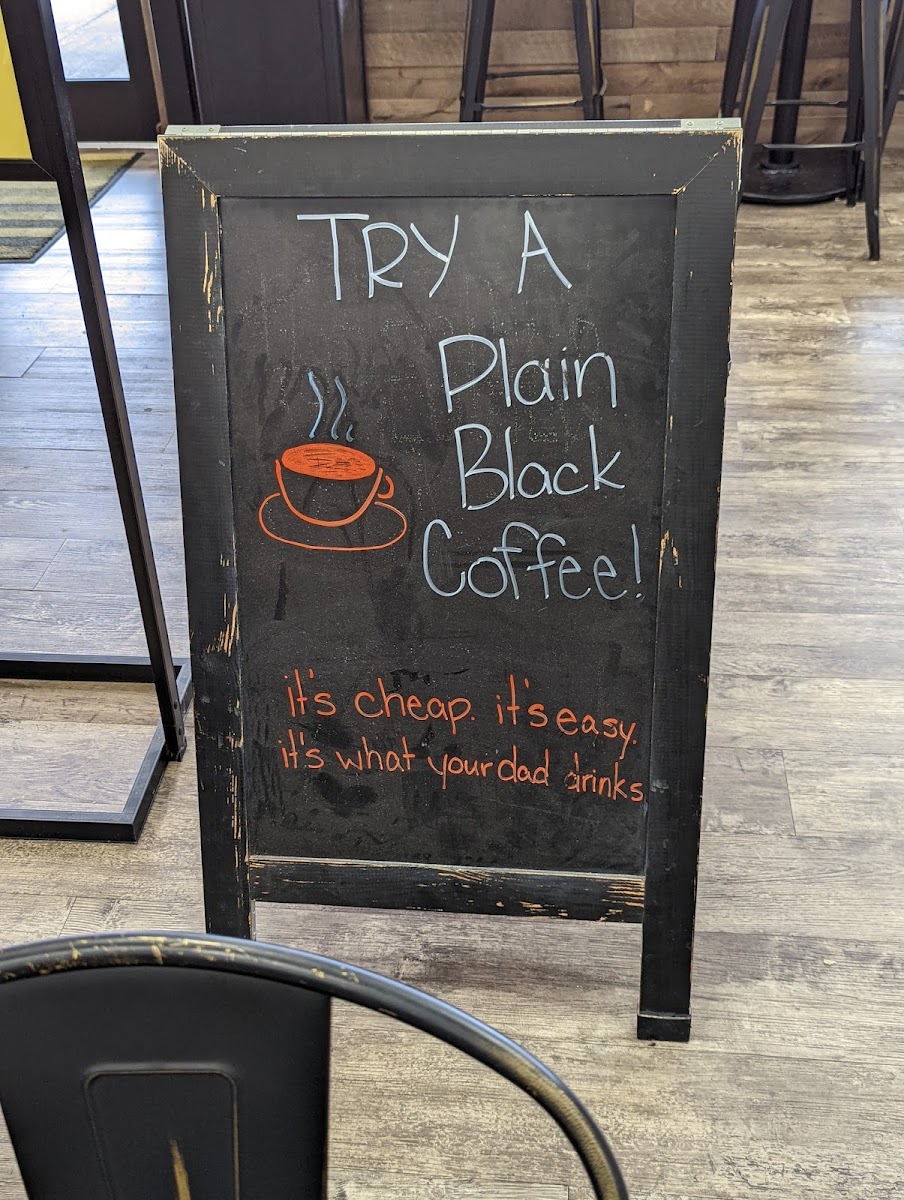 TRY A
Plain
Black
Coffee!
it's cheap. it's easy.
it's what your dad drinks